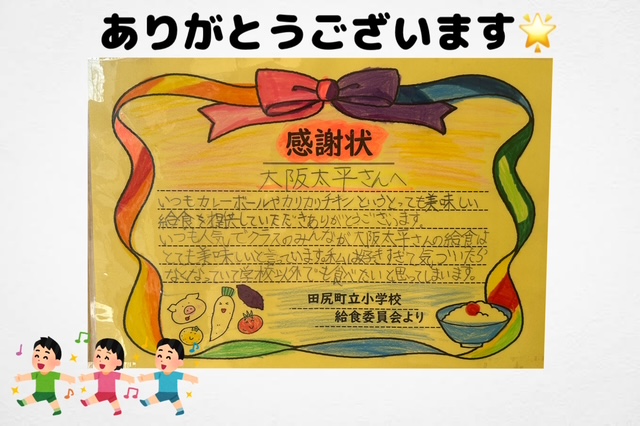 ありがとうございます🌟
感謝状
大阪太平さんへ
いつもカレーボールやカリカリチキンといったとっても美味しい
給食を提供していただきありがとうございます。
いつも人気でクラスのみんなが大阪太平さんの給食は
とても美味しいと言っています。私は好きすぎて気づいたら
なくなっていて学校以外でも食べたいと思ってしまいます。
田尻町立小学校
給食委員会より